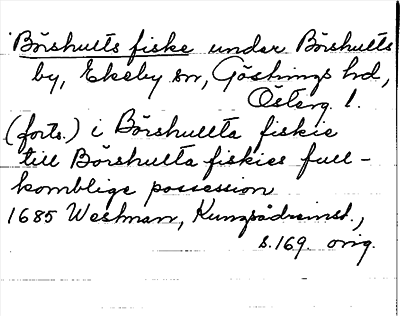 Börshults fiske under Börshults
by, Ekeby sn, Göstrings hd,
Österg. l.
(forts.) i Börshullta fiskie
till Börshulta fiskies full-
komblige possession
1685 Westman, Kungsådreinst.,
s. 169. orig.